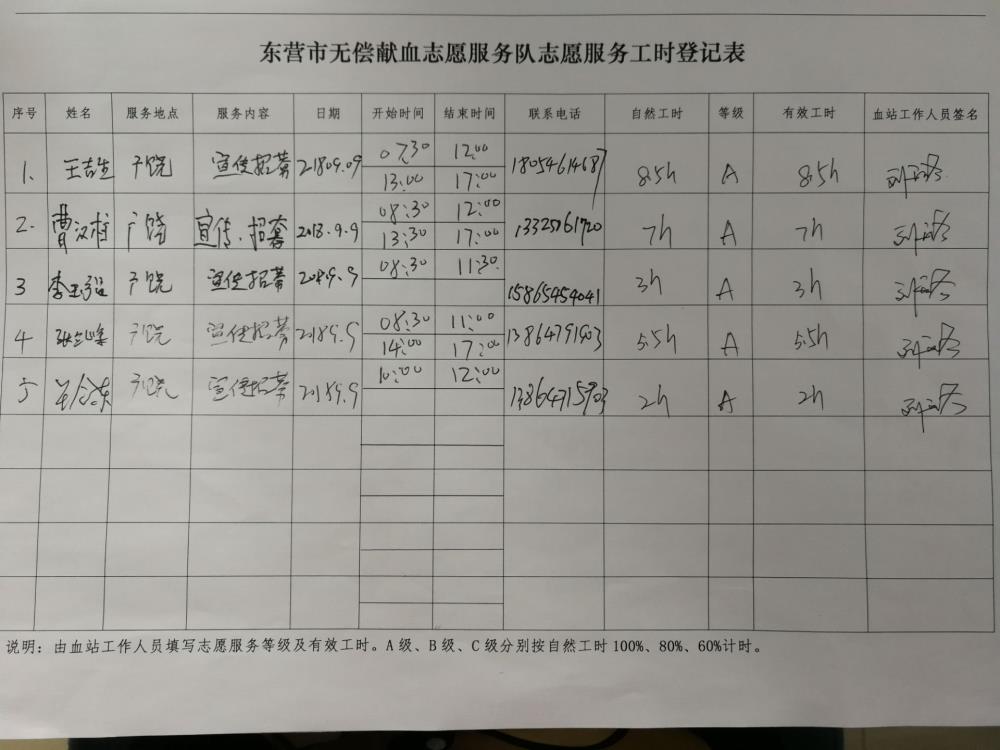 东营市无偿献血志愿服务队志愿服务工时登记表
序号 姓名 服务地点 服务内容 日期 开始时间 结束时间 联系电话 自然工时 等级 有效工时 血站工作人员签名
1. 王吉生 宣传招募 21809.09 07:30 12:00 18054614687 8.5h A 8.5h
13:00 17:00
2. 曹汉柱 宣传.招募 2018.9.9 08:30 12:00 13325061720 7h A 7h
13:30 17:00
3 李玉 宣传招募 2018.9.9 08:30 11:30 15865454041 3h A 3h
4 张 宣传招募 2018.9.9 08:30 11:00 13864791903 5.5h A 5.5h
14:00 17:00
5 宣传招募 2018.9.9 10:00 12:00 2h A 2h
说明：由血站工作人员填写志愿服务等级及有效工时。A级、B级、C级分别按自然工时100%、80%、60%计时。